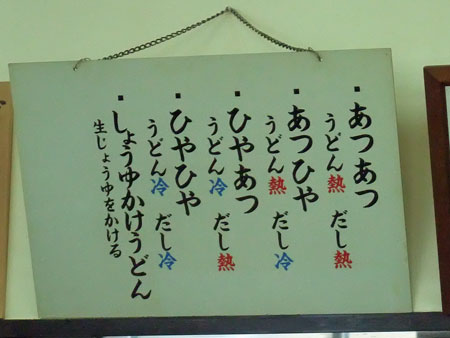 ▪あつあつ
うどん熱 だし熱
▪あつひや
うどん熱 だし冷
▪ひやあつ
うどん冷 だし熱
▪ひやひや
うどん冷 だし冷
▪しょうゆかけうどん
生じょうゆをかける